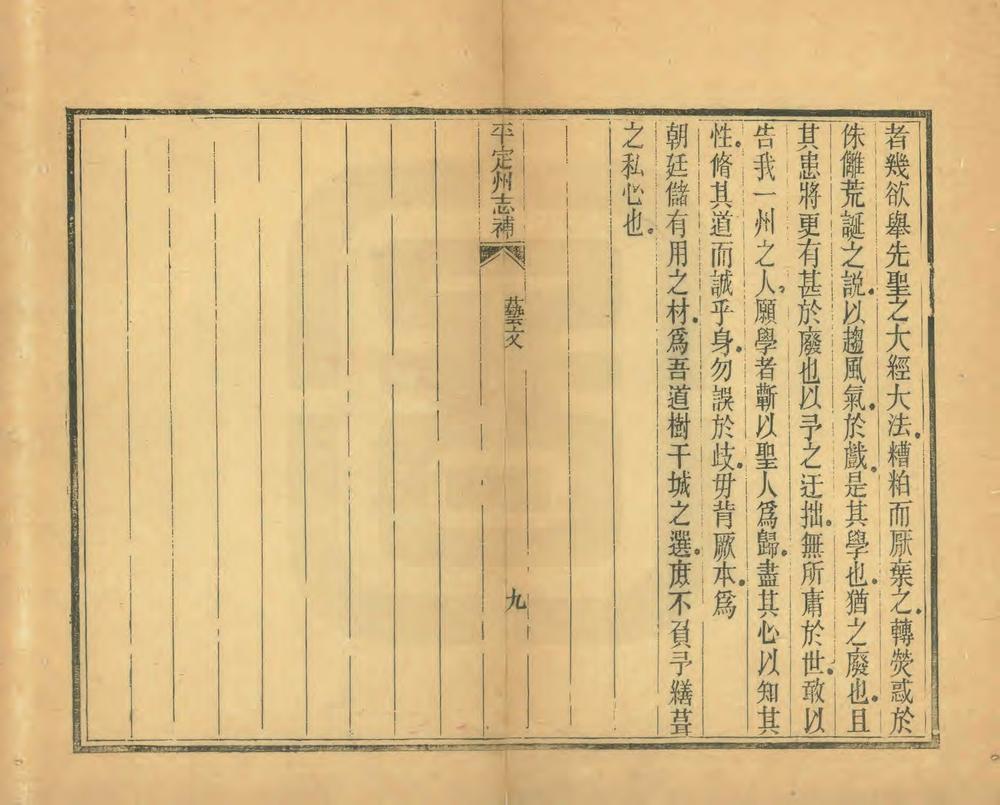 者幾欲舉先聖之大經大法糟粕而厭棄之轉熒惑於
侏儺荒誕之説以趨風氣於戲是其學也猶之廢也且
其患將更有甚於廢也以予之迂拙無所庸於世敢以
告我一州之人願學者蘄以聖人爲歸盡其心以知其
性脩其道而誠乎身勿誤於歧毋背厥本爲
朝廷儲有用之材爲吾道樹干城之選庶不負予繕葺
之私心也
平定州志補 藝文 九